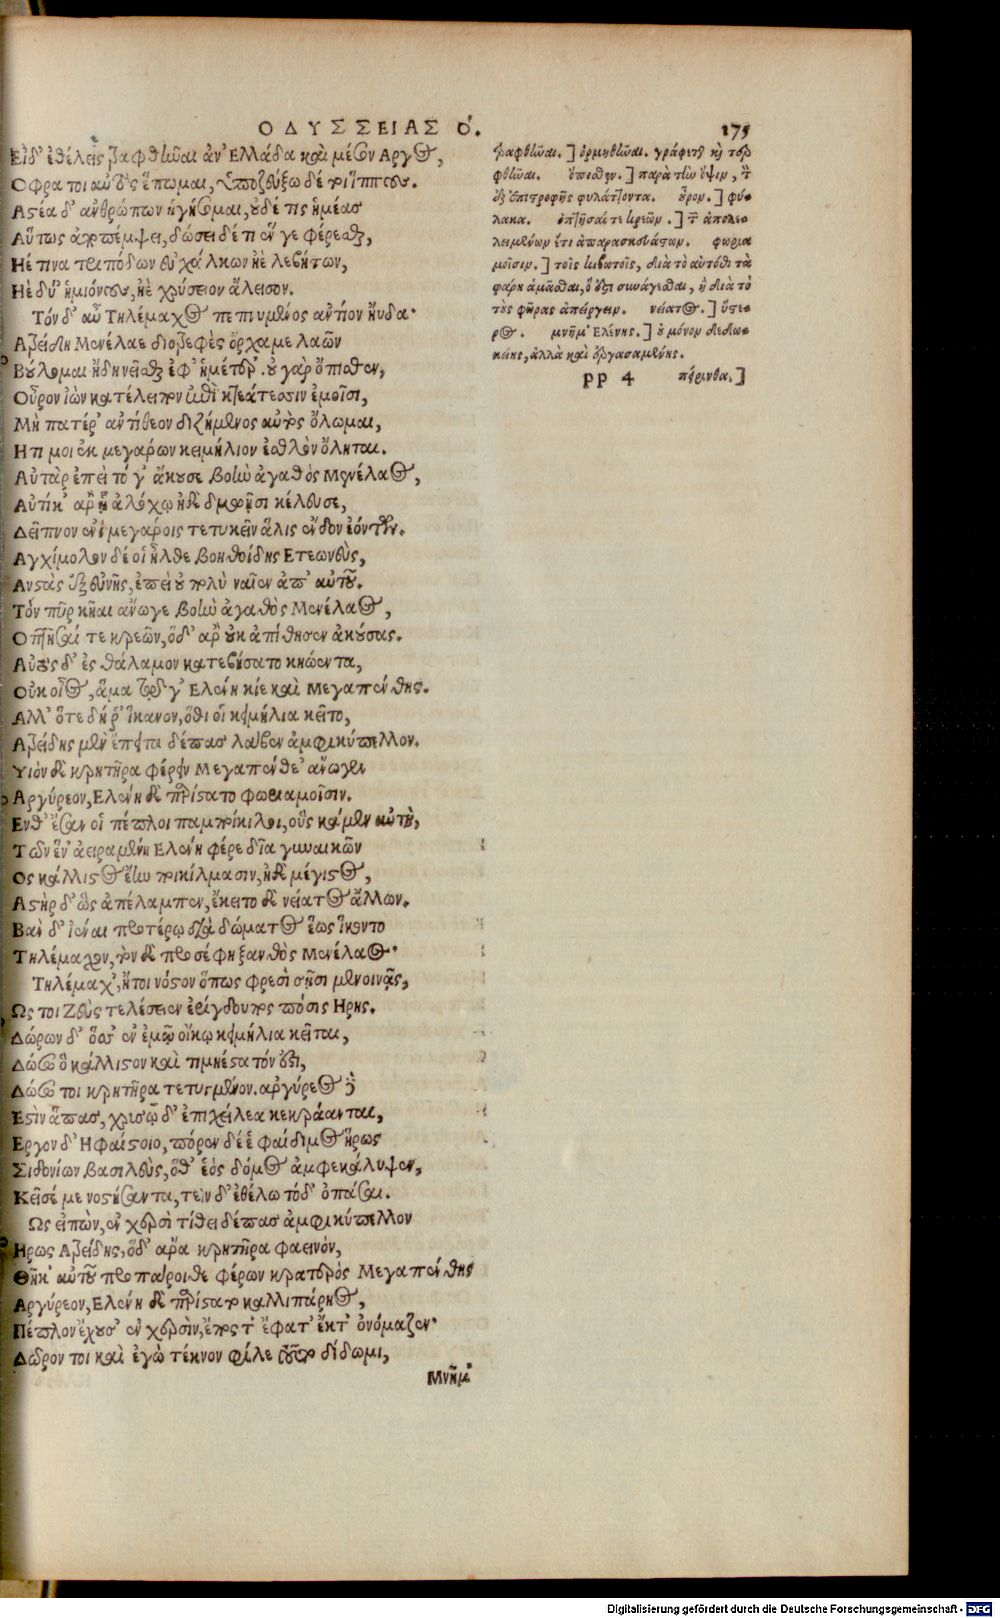 ΟΔΥΣΣΕΙΑΣ Ο.
175
Εἰ δ' ἐθέλεις τραφθῆναι ἀν' Ελλάδα καὶ μέσον Αργος,
Οφρα τοι αὐτὸς ἕπωμαι, ὑποζεύξω δέ τοι ἵππους.
Αςεα δ' ἀνθρώπων ἡγήσομαι, οὐδέ τις ἡμέας
Αὔτως ἀποπέμψει, δώσει δέ τι ἕν γε φέρεσθαι,
Ηέ τινα τριπόδων εὐχάλκων ἠὲ λεβήτων,
Ηὲ δύ' ἡμιόνους, ἠὲ χρύσειον ἄλεισον.
Τὸν δ' αὖ Τηλέμαχος πεπνυμένος ἀντίον ηὔδα·
Ατρείδη Μενέλαε διοτρεφὲς ὄρχαμε λαῶν
Βούλομαι ἤδη νεῖσθαι ἐφ' ἡμέτερ'. οὐ γὰρ ὄπιθεν,
Οὖρον ἰὼν κατέλειπον ἐπὶ κτεάτεσσιν ἐμοῖσι,
Μὴ πατέρ' ἀντίθεον διζήμενος αὐτὸς ὄλωμαι,
Η τι μοι ἐκ μεγάρων κειμήλιον ἐσθλὸν ὄληται.
Αὐτὰρ ἐπεὶ τό γ' ἄκουσε βοὴν ἀγαθὸς Μενέλαος,
Αὐτίκ' ἄρ' ᾗ ἀλόχῳ ἠδὲ δμωῇσι κέλευσε,
Δεῖπνον ἐνὶ μεγάροις τετυκεῖν ἅλις ἔνδον ἐόντων.
Αγχίμολον δέ οἱ ἦλθε Βοηθοίδης Ετεωνεὺς,
Ανςὰς ἐξ εὐνῆς, ἐπεὶ οὐ πολὺ ναῖεν ἀπ' αὐτοῦ.
Τὸν πῦρ κῆαι ἄνωγε βοὴν ἀγαθὸς Μενέλαος,
Οπτῆσαί τε κρεῶν, ὁ δ' ἄρ' οὐκ ἀπίθησεν ἀκούσας.
Αὐτὸς δ' ἐς θάλαμον κατεβήσατο κηώεντα,
Οὐκ οἶος, ἅμα τῷ γ' Ελένη κίε καὶ Μεγαπένθης.
Αλλ' ὅτε δή ῥ' ἵκανον, ὅθι οἱ κειμήλια κεῖτο,
Ατρείδης μὲν ἔπειτα δέπας λάβεν ἀμφικύπελλον.
Υἱὸν δὲ κρητῆρα φέρειν Μεγαπένθε' ἄνωγει
Αργύρεον, Ελένη δὲ παρίςατο φωριαμοῖσιν.
Ενθ' ἔσαν οἱ πέπλοι παμποίκιλοι, οὓς κάμεν αὐτὴ,
Τῶν ἕν' ἀειραμένη Ελένη φέρε δῖα γυναικῶν
Ος κάλλιςος ἔην ποικίλμασιν, ἠδὲ μέγιςος,
Αςὴρ δ' ὣς ἀπέλαμπεν, ἔκειτο δὲ νείατος ἄλλων.
Βὰν δ' ἰέναι προτέρω διὰ δώματος ἕως ἵκοντο
Τηλέμαχον, τὸν δὲ προσέφη ξανθὸς Μενέλαος·
Τηλέμαχ', ἤτοι νόςον ὅπως φρεσὶ σῇσι μενοινᾷς,
Ως τοι Ζεὺς τελέσειεν ἐρίγδουπος πόσις Ηρης.
Δώρων δ' ὅσσ' ἐν ἐμῷ οἴκῳ κειμήλια κεῖται,
Δώσω ὃ κάλλιςον καὶ τιμηέςατόν ἐςι,
Δώσω τοι κρητῆρα τετυγμένον. ἀργύρεος δὲ
Εςὶν ἅπας, χρυσῷ δ' ἐπὶ χείλεα κεκράανται,
Εργον δ' Ηφαίςοιο, πόρεν δέ ἑ φαίδιμος ἥρως
Σιδονίων βασιλεὺς, ὅθ' ἑὸς δόμος ἀμφεκάλυψεν,
Κεῖσέ με νοςήσαντα, τεῒν δ' ἐθέλω τόδ' ὀπάσσαι.
Ως εἰπὼν, ἐν χερσὶ τίθει δέπας ἀμφικύπελλον
Ηρως Ατρείδης, ὁ δ' ἄρα κρητῆρα φαεινὸν,
Θῆκ' αὐτοῦ προπάροιθε φέρων κρατερὸς Μεγαπένθης
Αργύρεον, Ελένη δὲ παρίςατο καλλιπάρηος,
Πέπλον ἔχουσ' ἐν χερσὶν, ἔπος τ' ἔφατ' ἔκ τ' ὀνόμαζεν·
Δῶρον τοι καὶ ἐγὼ τέκνον φίλε τοῦτο δίδωμι,
Μνῆμ'
τραφθῆναι.] ὁρμηθῆναι. γράφεται καὶ τερ
φθῆναι. ὄπισθεν.] παρὰ τὴν ὄψιν, τ
ἐξ ἐπιτροφῆς φυλάττοντα. οὖρον.] φύ-
λακα. ὀπτῆσαί τε κρεῶν.] τῶν ἀπολε-
λειμένων ἔτι ἀπαρασκευάςων. φωρια
μοῖσιν.] τοῖς κιβωτοῖς, διὰ τὸ αὐτόθι τὰ
φάρη ἀμᾶσθαι, ὅ ἐςι συνάγεσθαι, ἢ διὰ τὸ
τοὺς φῶρας ἀπείργειν. νείατος.] ὕςε-
ρος. μνῆμ' Ελένης.] οὐ μόνον δεδω-
κείης, ἀλλὰ καὶ ἐργασαμένης.
pp 4 πείρινθα.]
Digitalisierung gefördert durch die Deutsche Forschungsgemeinschaft - DFG